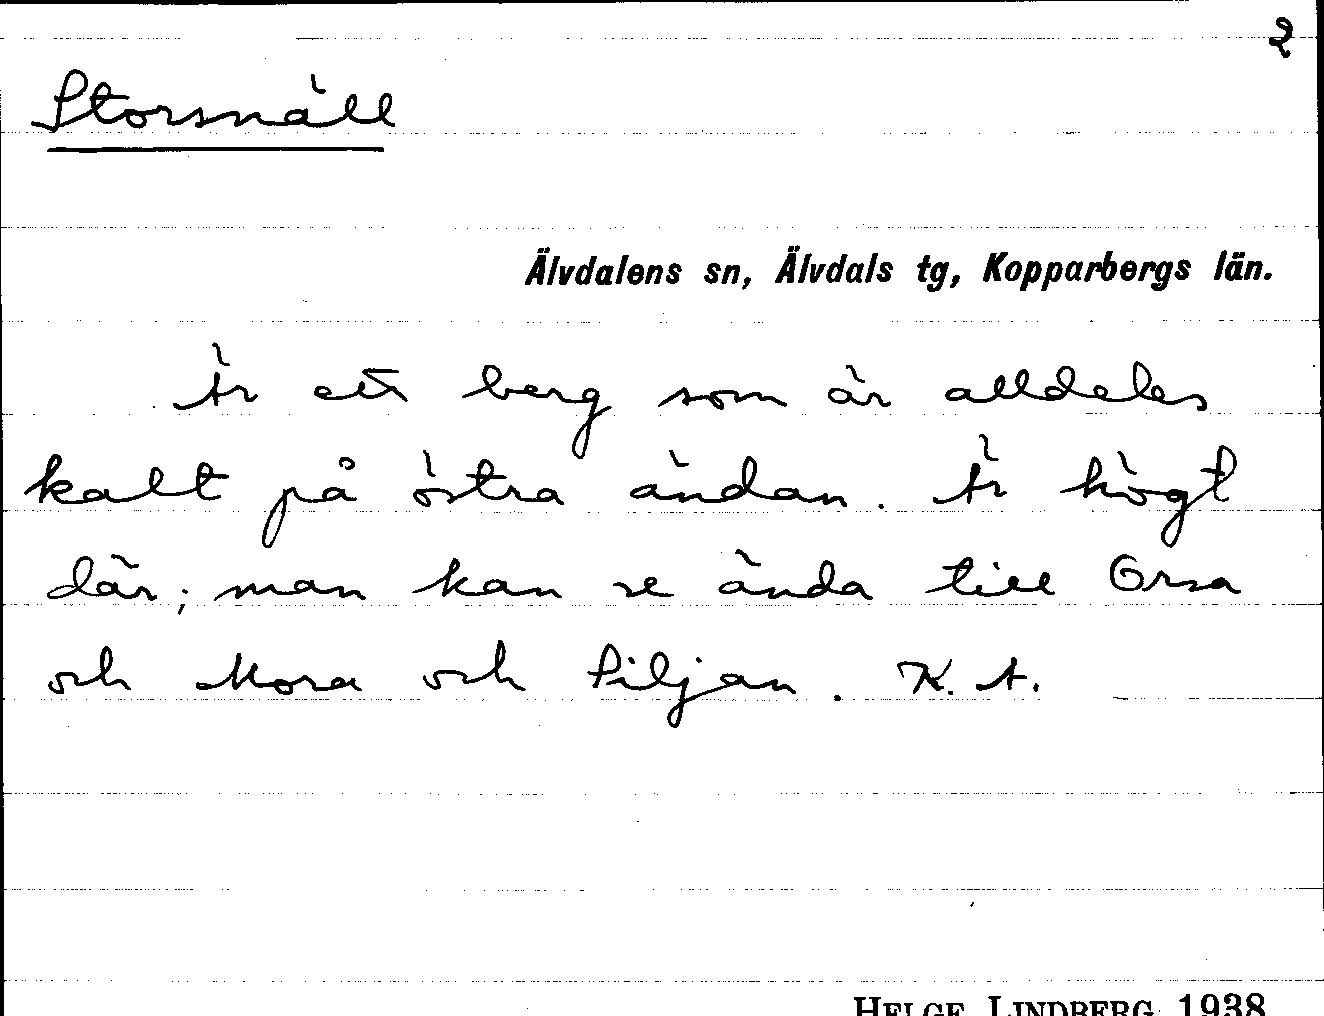 2
Storsnäll
Älvdalens sn, Älvdals tg, Kopparbergs län.
Är ett berg som är alldeles
kalt på östra ändan. Är högt
där; man kan se ända till Orsa
och Mora och Siljan. K. A.
HELGE LINDBERG 1938